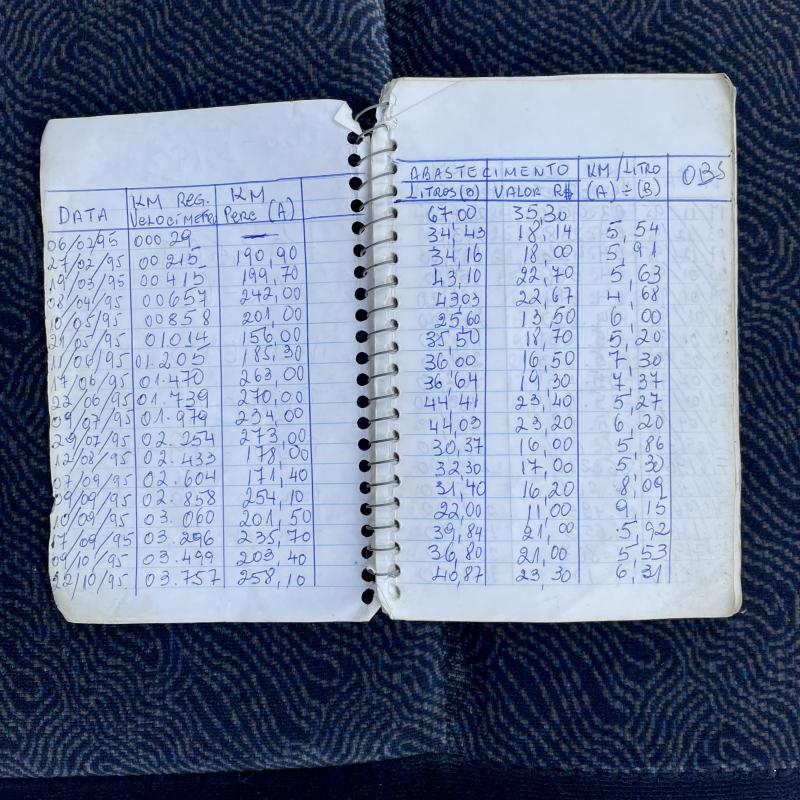 DATA KM REG. VELOCÍMETRO KM PERC (A)
06/02/95 000 29 —
27/02/95 00215 190,90
19/03/95 00415 199,70
08/04/95 00657 242,00
10/05/95 00858 201,00
21/05/95 01014 156,00
11/06/95 01.205 185,30
17/06/95 01.470 263,00
22/06/95 01.739 270,00
09/07/95 01.979 234,00
29/07/95 02.254 273,00
12/08/95 02.433 178,00
07/09/95 02.604 171,40
09/09/95 02.858 254,10
10/09/95 03.060 201,50
17/09/95 03.296 235,70
09/10/95 03.499 203,40
22/10/95 03.757 258,10
ABASTECIMENTO KM/LITRO OBS
LITROS (B) VALOR R$ (A) ÷ (B)
67,00 35,30
34,43 18,14 5,54
34,16 18,00 5,91
43,10 22,70 5,63
43,03 22,67 4,68
25,60 13,50 6,00
35,50 18,70 5,20
36,00 16,50 7,30
36,64 19,30 7,37
44,41 23,40 5,27
44,03 23,20 6,20
30,37 16,00 5,86
32,30 17,00 5,30
31,40 16,20 8,09
22,00 11,00 9,15
39,84 21,00 5,92
36,80 21,00 5,53
40,87 23,30 6,31